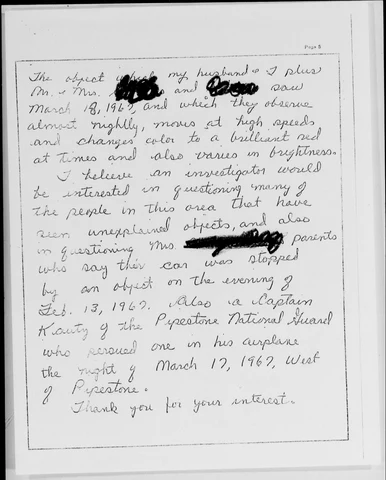 Page 5
The object which my husband & I plus
Mr. & Mrs. and saw
March 18, 1967, and which they observe
almost nightly, moves at high speeds
and changes color to a brilliant red
at times and also varies in brightness.
I believe an investigator would
be interested in questioning many of
the people in this area that have
seen unexplained objects, and also
in questioning Mrs. parents
who say their car was stopped
by an object on the evening of
Feb. 13, 1967. Also a Captain
Kauty of the Pipestone National Guard
who persued one in his airplane
the night of March 17, 1967, West
of Pipestone.
Thank you for your interest.